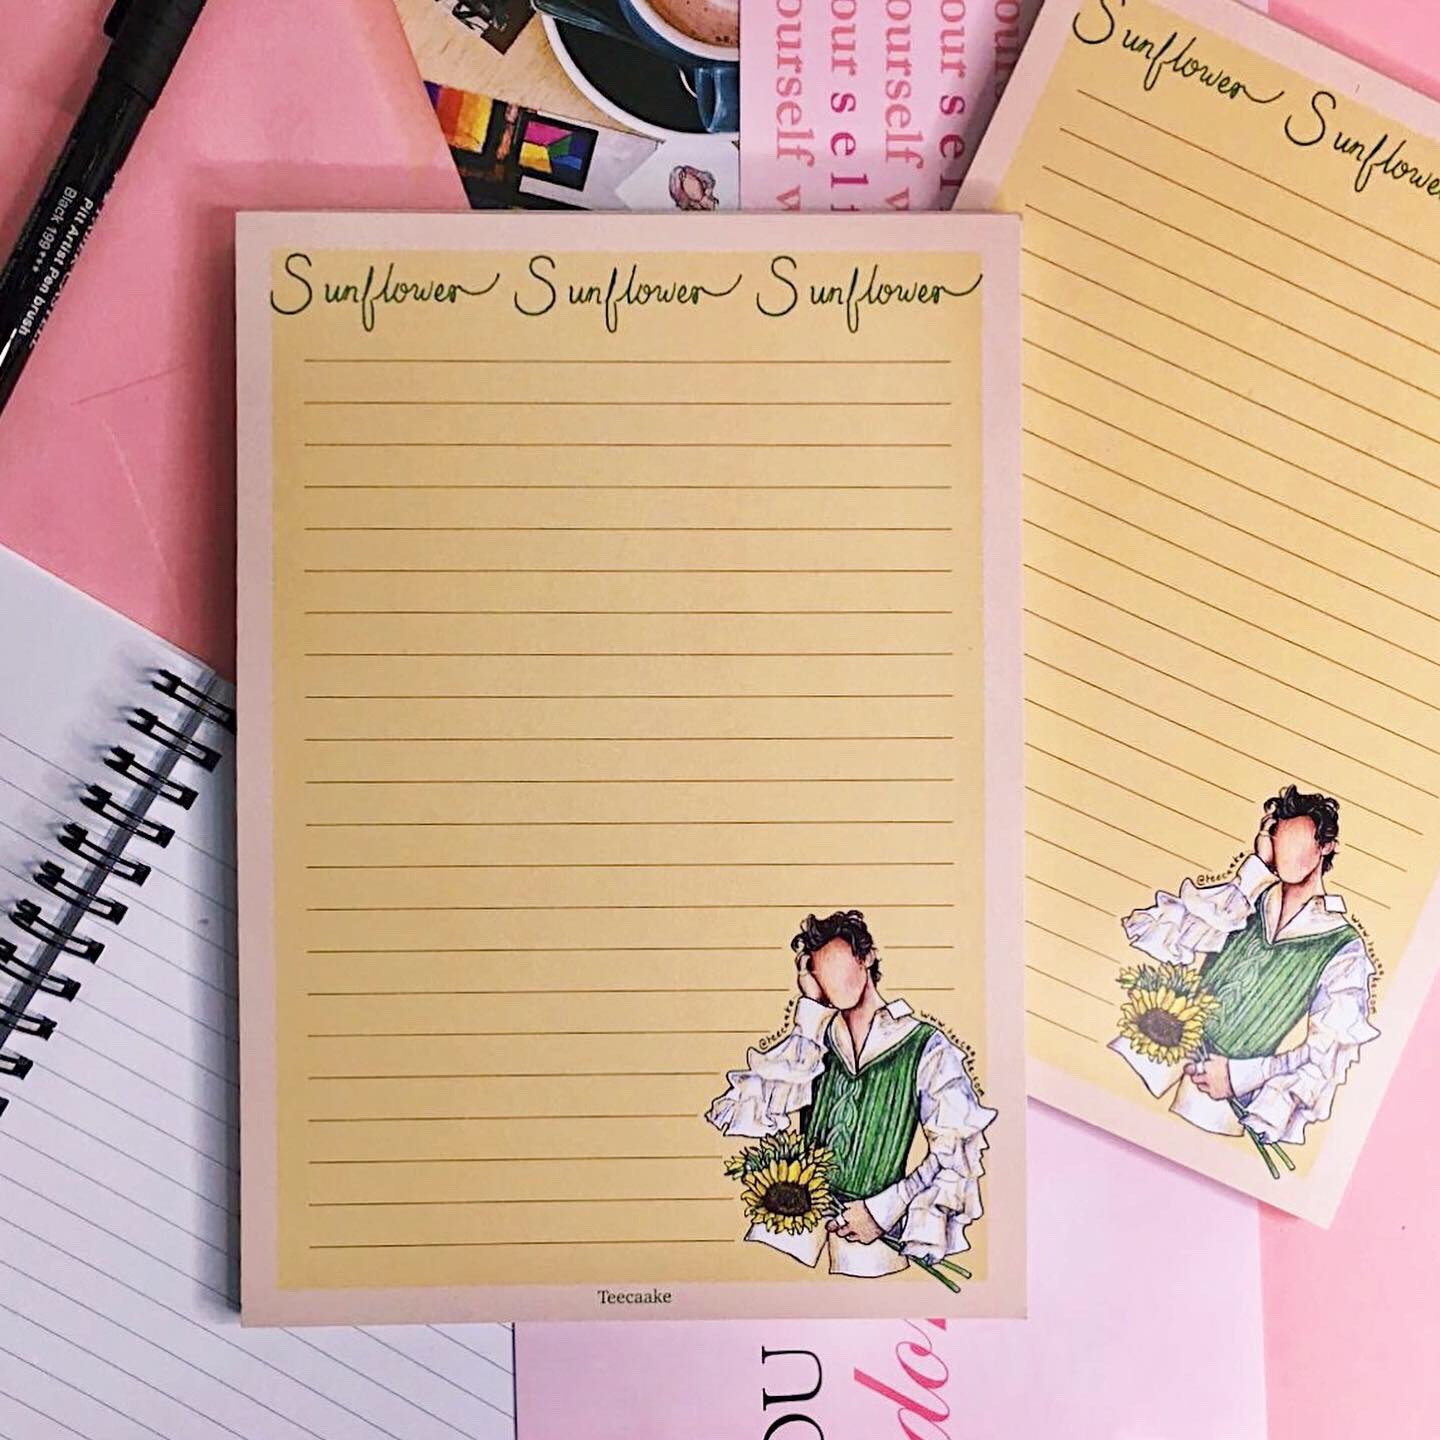 Sunflower Sunflower Sunflower
@teecaake
www.teecaake.com
Teecaake
Sunflower Sunflower
@teecaake
www.teecaake.com
Pitt Artist Pen brush
Black 199***
ourself
yourself
ourself
OU